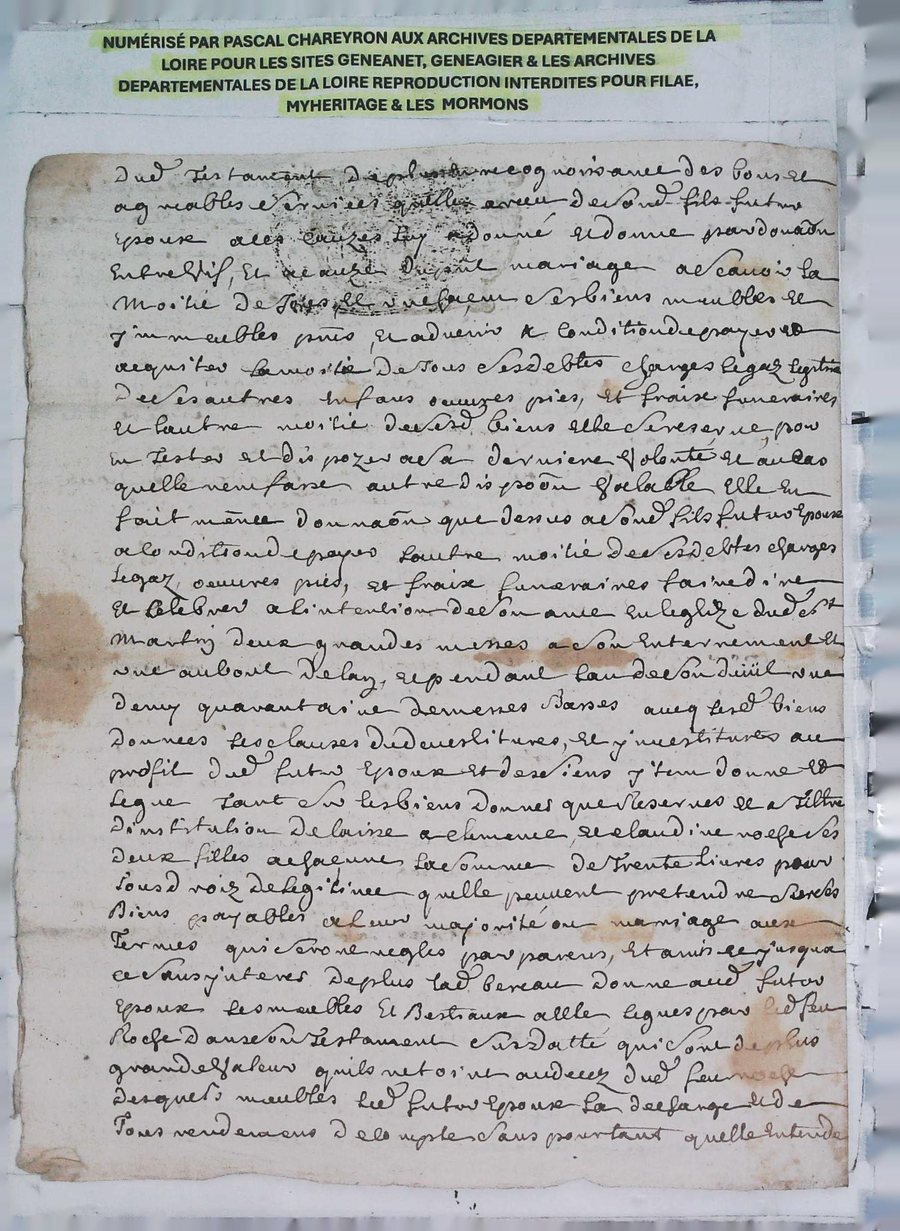 NUMÉRISÉ PAR PASCAL CHAREYRON AUX ARCHIVES DEPARTEMENTALES DE LA
LOIRE POUR LES SITES GENEANET, GENEAGIER & LES ARCHIVES
DEPARTEMENTALES DE LA LOIRE REPRODUCTION INTERDITES POUR FILAE,
MYHERITAGE & LES MORMONS
Dud. Testament De plus en recognoissance des bons et
agreables services quelle a receu de sond. fils futur
Epoux a ces cauzes luy a donné Et donne par donaõn
Entre Vif, Et a cauze du pñt mariage a scavoir la
Moitié de Tous Et ses biens meubles Et
jmmeubles pñts, Et advenir a Condition de payer Et
acquiter la moitié de Tous ses debtes charges legaz
de ses autres Enfans oeuvres pies, Et fraix funeraires
Et lautre moitié de sesd. biens elle se reserve, pour
En Tester et dispozer a sa derniere Volonté et au cas
quelle nen fasse autre dispoõn Valable Elle En
fait mesme donnaõn que dessus a sond. fils futur Epoux
a Condition de payer lautre moitié de ses debtes charges
legaz, oeuvres pies, et fraix funeraires faire dire
Et Celebrer a lintention de son ame En leglize dud. St
Martin deux grandes messes a son Enterrement Et
une au bout de lan, et pendant lan de son düül une
demy quarantaine de messes Basses avecq lesd. biens
Donnees les clauses , Et jnvestitures au
profit dud. futur Epoux Et des siens jtem donne Et
legue Tant sur les biens Donnes que Reserves Et a Tiltre
dinstitution Delaisse a clemence, et claudine roche ses
deux filles a chacune la somme de Trente livres pour
Tous droiz de legitime quelle peuvent pretendre sur ses
Biens payables a leur majorité ou mariage aux
Termes qui seront regles par parens, Et amis et jusqua
ce sans jnterés De plus lad. bereau donne aud. futur
Epoux les meubles Et Bestiaux a Elle legues par led. feu
Roche dans son Testament susdatté qui sont de plus
grande Valeur quils netoint au decez dud. feu roche
Desquels meubles led. futur Epoux la decharge et de
Tous rendemens de Compte sans pourtant quelle Entende